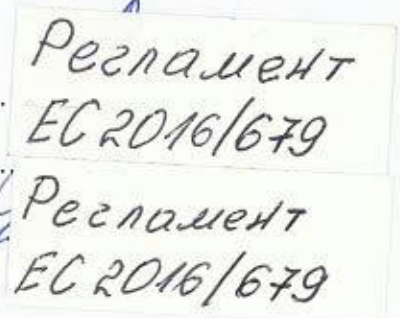 Регламент
ЕС 2016/679
Регламент
ЕС 2016/679